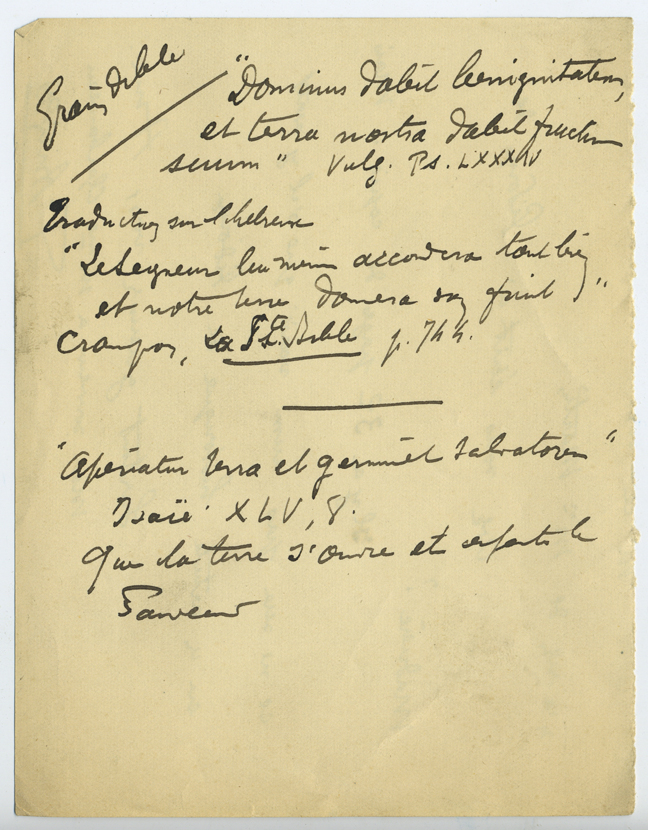 Grain de blé
"Dominus dabit benignitatem,
et terra nostra dabit fructum
suum" Vulg. Ps. LXXXIV
Traduction sur l'hébreux
"Le Seigneur lui même accordera tout bien
et notre terre donnera son fruit"
Crampon, La Ste. Bible p. 744.
"Aperiatur terra et germinet salvatorem"
Isaïe XLV, 8.
Que la terre s'ouvre et enfante le
Sauveur